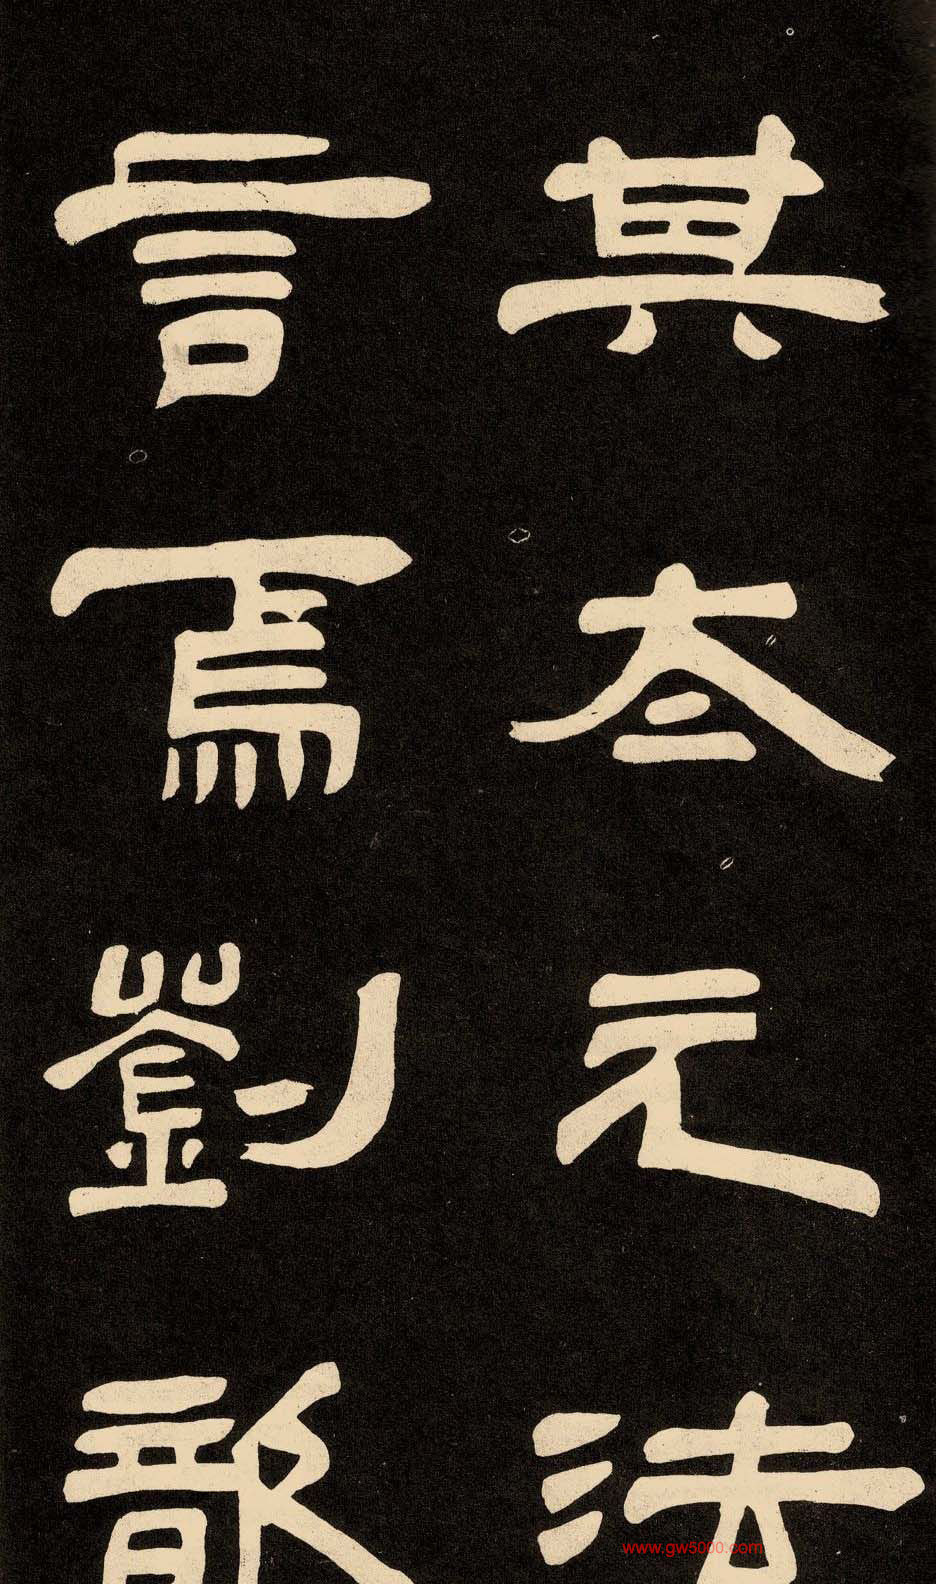 其夳元法
言焉劉歆
www.gw5000.com